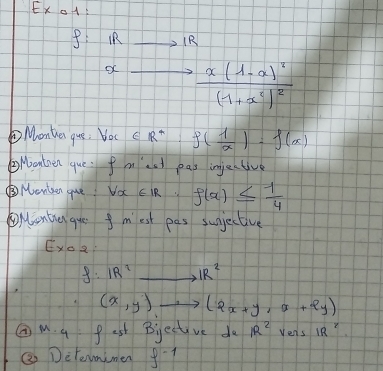 Exo1:
f: IR → IR
x → x(1-x)² / (1+x²)²
① Montrer que: ∀x ∈ IR* f(1/x) = f(x)
② Montrer que: f n'est pas injective
③ Montrer que: ∀x ∈ IR. f(x) ≤ 1/4
④ Montrer que f n'est pas surjective
Exo2:
f: IR² → IR²
(x,y) → (2x+y, x+2y)
① M.q f est Bijective de IR² vers IR²
② Déterminer f⁻¹